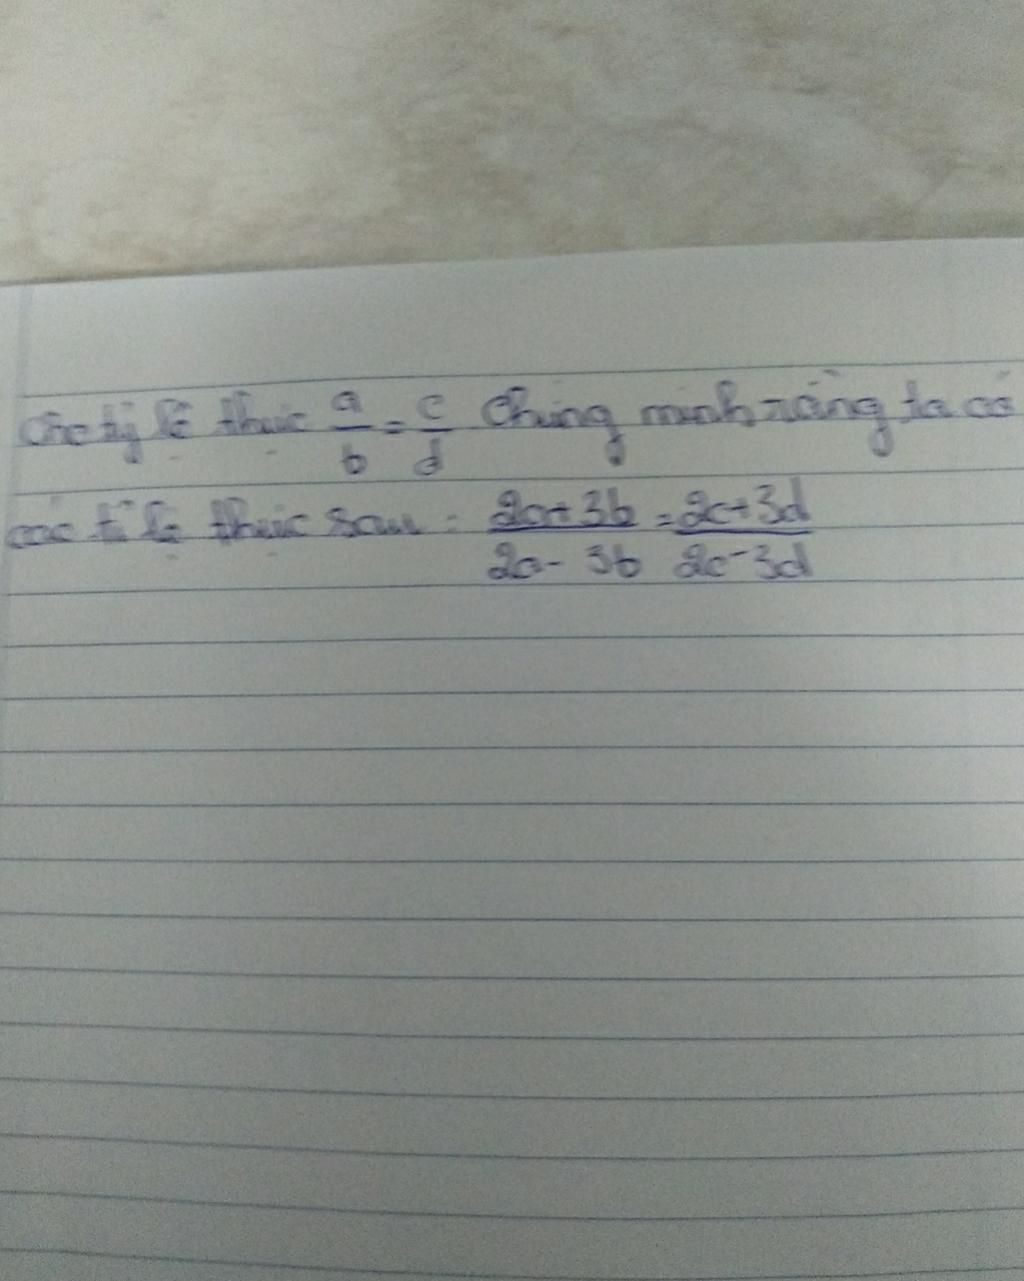 Cho tỷ lệ thức a/b = c/d Chứng minh rằng ta có
các tỉ lệ thức sau: 2a+3b/2a-3b = 2c+3d/2c-3d